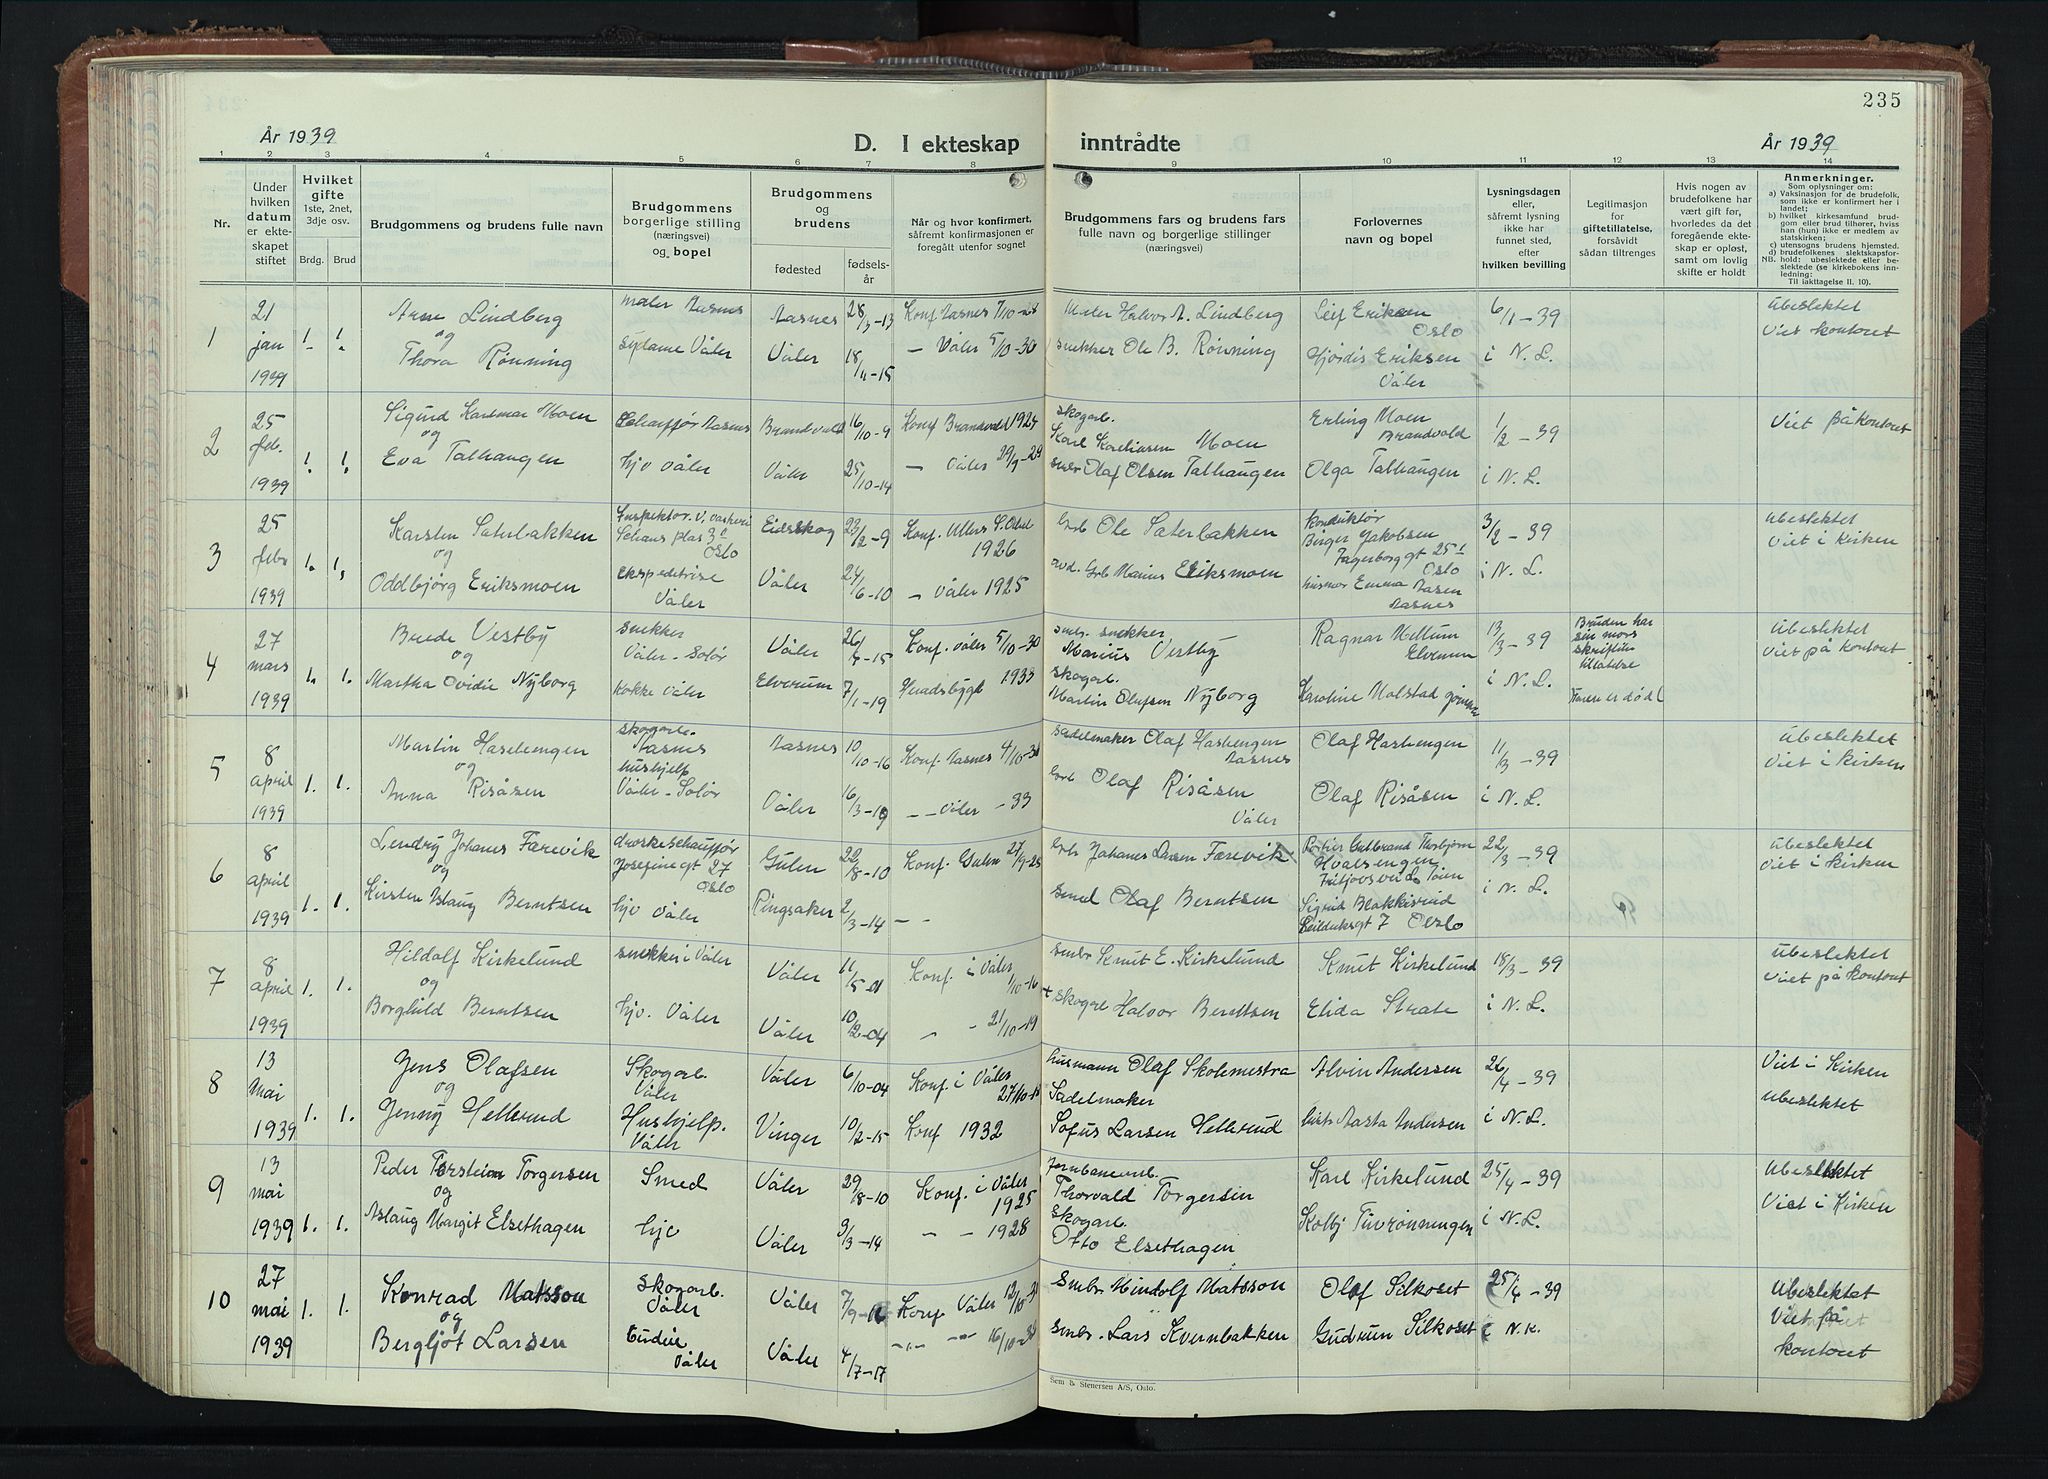 235
År 1939
D. I ekteskap inntrådte
År 1939
1 2 3 4 5 6 7 8 9 10 11 12 13 14
Nr.
Under hvilken datum er ekte-skapet stiftet
Hvilket gifte
1ste, 2net, 3dje osv.
Brdg. Brud
Brudgommens og brudens fulle navn
Brudgommens borgerlige stilling (næringsvei) og bopel
Brudgommens og brudens
fødested
fødsels-år
Når og hvor konfirmert, såfremt konfirmasjonen er foregått utenfor sognet
Brudgommens fars og brudens fars fulle navn og borgerlige stillinger (næringsvei)
Forlovernes navn og bopel
Lysningsdagen eller, såfremt lysning ikke har funnet sted, efter hvilken bevilling
Legitimasjon for giftetillatelse, forsåvidt sådan tiltrenges
Hvis nogen av brudefolkene har vært gift før, hvorledes da det foregående ekte-skap er opløst, samt om lovlig skifte er holdt
Anmerkninger.
Som oplysninger om:
a) Vaksinasjon for de brudefolk, som ikke er konfirmert her i landet;
b) hvilket kirkesamfund brud-gom eller brud tilhører, hviss han (hun) ikke er medlem av statskirken;
c) utensogns brudens hjemsted.
d) brudefolkenes slektskapsfor-hold: ubeslektede eller be-slektede (se kirkebokens inn-ledning:
NB.
Til iakttagelse II. 10).
1 21 jan 1939 1. 1.
Arne Lindberg maler Aasnes Aasnes 28/3-13 Konf Aasnes 7/10-28 Maler Halvor A. Lindberg Leif Eriksen Oslo 6/1-39 Ubeslektet
og
Thora Rønning Sydame Våler Våler 18/11-15 — Våler 5/10-30 snekker Ole B. Rønning Hjørdis Eriksen Våler i N. L. Viet kontoret
2 25 feb. 1939 1. 1.
Sigurd Karelmar Moen Chauffør Aasnes Brandvold 16/10-9 Konf Brandvold 1924 skogarb. Karl Kareliusen Moen Erling Moen Brandvold 1/2-39 Viet på kontoret
og
Eva Talhaugen hjv Våler Våler 25/10-14 — Våler 29/9-29 smbr Olaf Olsen Talhaugen Olga Talhaugen i N. L.
3 25 febr 1939 1. 1.
Karsten Sæterbakken Inspektør v. vaskeri Schaus plas 3 Oslo Eidsskog 22/2-9 Konf. Ullern S. Odal 1926 Grb Ole Sæterbakken Konduktør Birger Jakobsen Fagerborg gt 25 Oslo 3/2-39 Ubeslektet
og
Oddbjørg Eriksmoen Ekspeditrise Våler Våler 24/6-10 — Våler 1925 avd. Grb Marius Eriksmoen husmor Emma Aasen Aasnes i N. L. Viet i Kirken
4 27 mars 1939 1. 1.
Brede Vestby snekker Våler - Solør Våler Konf. Våler 5/10-30 smbr. snekker Marius Vestby Ragnar Mellum Elverum 13/3-39 Bruden har sin mors skriftlig tillatelse Ubeslektet
og
Martha Ovidie Nyborg Kokke Våler Elverum 7/1-19 Heradsbygd 1933 skogarb. Martin Olufsen Nyborg Karoline Molstad i N. L. Faren er død Viet på kontoret
5 8 april 1939 1. 1.
Martin Hasliengen skogarb. Aasnes Aasnes 10/10-16 Konf. Aasnes 4/10-31 Sadelmaker Olaf Haslengen Aasnes Olaf Haslengen 11/3-39 Ubeslektet
og
Anna Risåsen hushjelp Våler - Solør Våler 16/3-19 — Våler -33 Grb Olaf Risåsen Våler Olaf Risåsen i N. L. Viet i kirken
6 8 april 1939 1. 1.
Lendry Johanes Færevik droskechauffør Josefine gt 27 Oslo Gulen 22/8-10 Konf. Gulen 27/9-25 Grb Johanes Larsen Færevik Portier Gulbrand Thorbjørn Hvalsengen Fritjovsvei Tøien 22/3-39 Ubeslektet
og
Kirsten Aslaug Berntsen hjv Våler Ringsaker 2/3-14 — smed Olaf Berntsen Sigrid Blakkisrud Seilduksgt 7 Oslo i N. L. Viet i kirken
7 8 april 1939 1. 1.
Hildolf Kirkelund snekker i Våler Våler 11/5-01 Konf. i Våler 1/10-16 smbr Knut E. Kirkelund Knut Kirkelund 18/3-39 Ubeslektet
og
Borghild Berntsen hjv. Våler Våler 10/12-04 — 21/10-19 + skogarb Halvor Berntsen Elida Strate i N. L. Viet på kontoret
8 13 Mai 1939 1. 1.
Jens Olafsen Skogarb. Våler Våler 6/10-04 Konf. i Våler 27/10-18 husmann Olaf Skolemestra Alvin Andersen 26/4-39 Viet i Kirken
og
Jenny Hellerud Hushjelp. Våler Vinger 10/2-15 Konf 1932 Sadelmaker Sofus Larsen Hellerud Aasta Andersen i N. L. Ubeslektet
9 13 mai 1939 1. 1.
Peder Torstein Torgersen Smed Våler 29/8-10 Konf. i Våler 1925 Jernbanearb. Thorvald Torgersen Karl Kirkelund 25/4-39 Ubeslektet
og
Aslaug Margit Elsethagen hjv Våler 9/3-14 — — 1928 Skogarb. Otto Elsethagen Kolbj Tuvrønningen i N. L. Viet i Kirken
10 27 mai 1939 1. 1.
Konrad Matsson Skogarb. Våler Våler 7/9-16 Konf Våler 12/10-30 Smbr Hindolf Matsson Olaf Silkoset 25/4-39 Ubeslektet
og
Bergljot Larsen Våler Våler 4/7-17 —"— 16/10- Smbr. Lars Kvernbakken Gudrun Silkoset i N. K. Viet på kontoret
Sem & Stenersen A/S, Oslo.